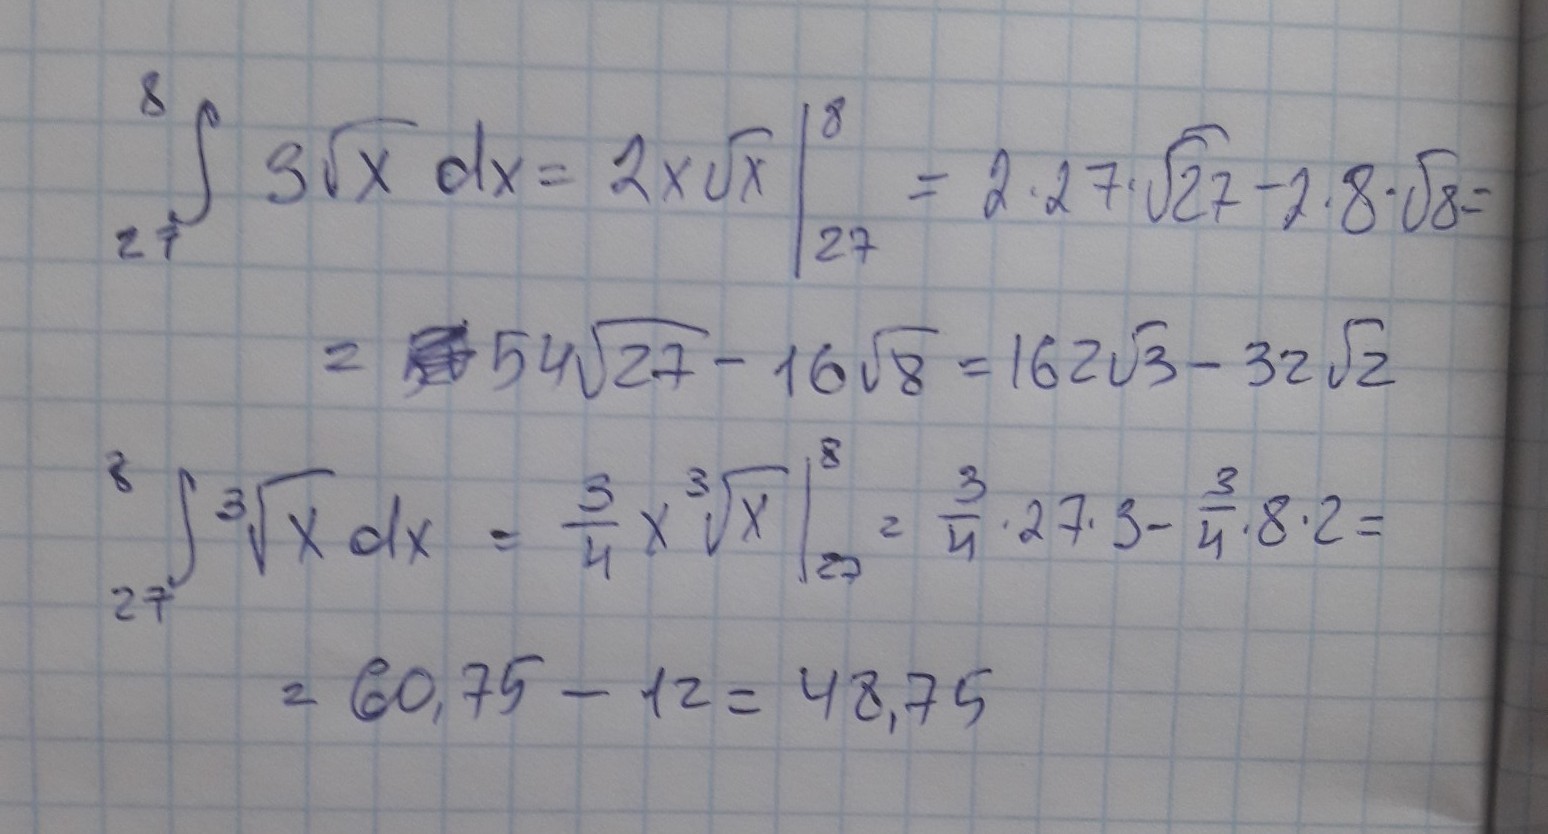 ∫₂₇⁸ 3√x dx = 2x√x |₂₇⁸ = 2·27·√27 - 2·8·√8 =
= 54√27 - 16√8 = 162√3 - 32√2
∫₂₇⁸ ³√x dx = 3/4 x ³√x |₂₇⁸ = 3/4 · 27 · 3 - 3/4 · 8 · 2 =
= 60,75 - 12 = 48,75